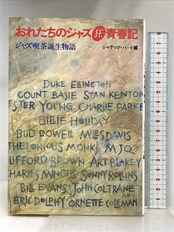 おれたちのジャズ狂青春記
ジャズ喫茶誕生物語
ジャテック・バード編
DUKE ELLINGTON
COUNT BASIE STAN KENTON
LESTER YOUNG CHARLIE PARKER
BILLIE HOLIDAY
BUD POWELL MILES DAVIS
THELONIOUS MONK MJQ
CLIFFORD BROWN ART BLAKEY
CHARLES MINGUS SONNY ROLLINS
BILL EVANS JOHN COLTRANE
ERIC DOLPHY ORNETTE COLEMAN